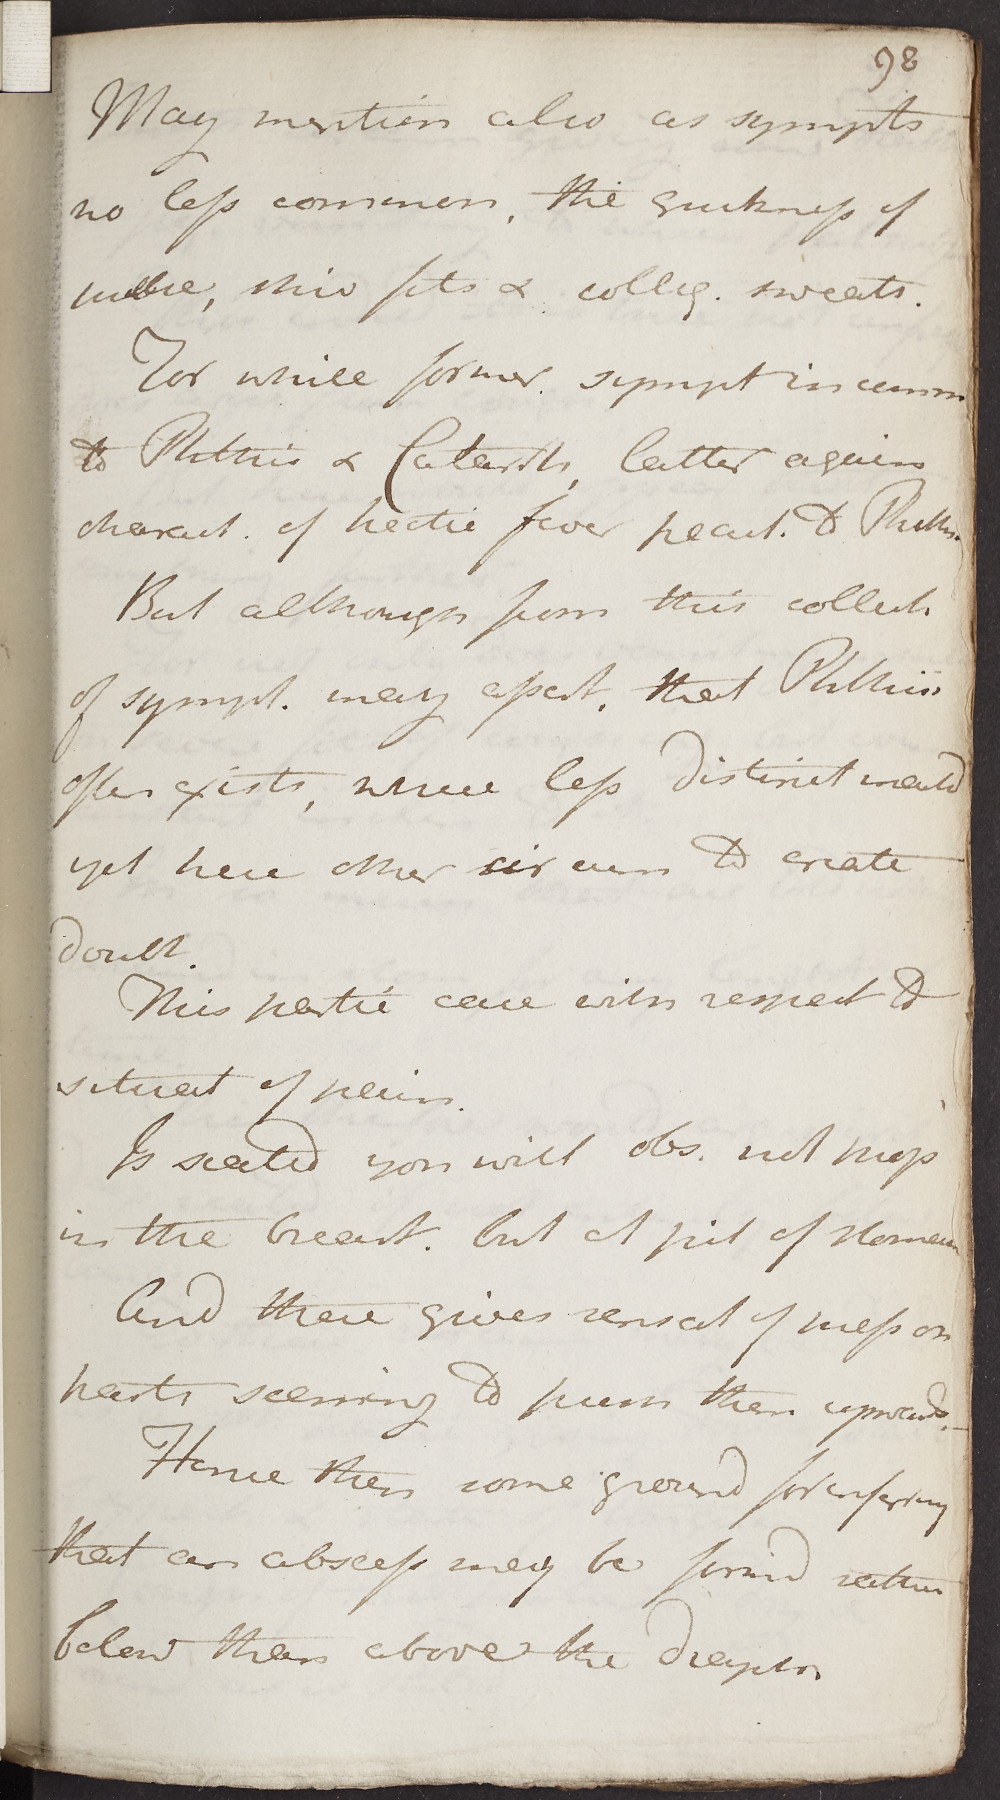 98
May mention also as sympts
no less common, the quickness of
pulse, shiv fits & collig. sweats.
For while former sympt in comm
to Phthis & Catarrh, latter again
charact. of hectic fever pecul. to Phthis.
But although from this collect
of sympt. may assert, that Phthisis
often exists, where less distinct mark'd
yet here other circum to create
doubt.
This partic case with respect to
situat of pain.
Is seated you will obs. not high
in the breast. but at pit of stomach
And there gives sensat of press on
parts seeming to push them upwards.
Hence then some ground for infering
that an abscess may be form'd rather
below than above the diaphr